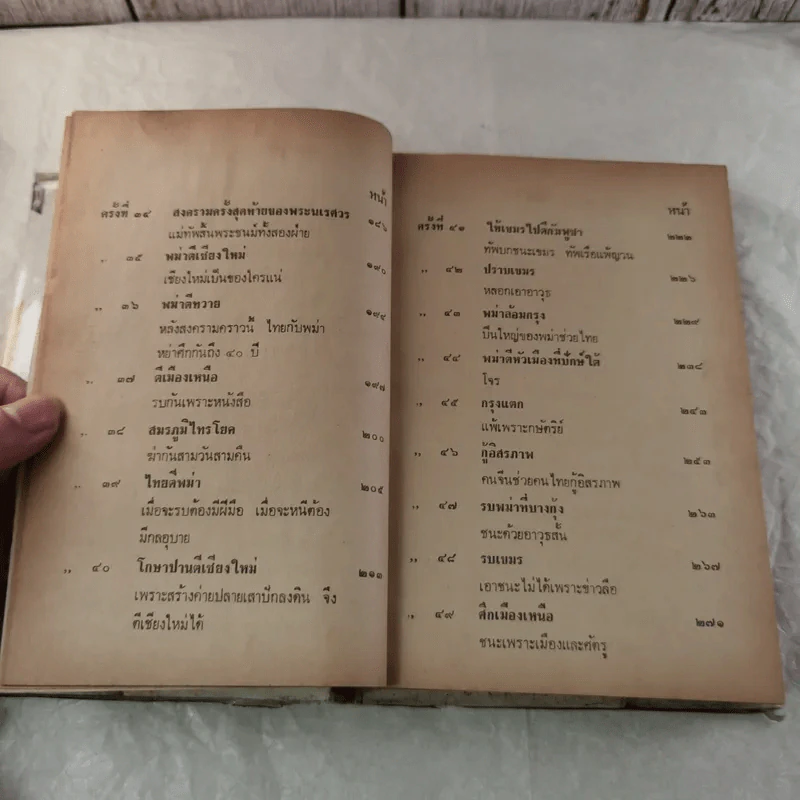 หน้า
ครั้งที่ ๓๔ สงครามครั้งสุดท้ายของพระนเรศวร ๑๘๖
แม่ทัพสิ้นพระชนม์ทั้งสองฝ่าย
„ ๓๕ พม่าตีเชียงใหม่ ๑๙๐
เชียงใหม่เป็นของใครแน่
„ ๓๖ พม่าตีทวาย
หลังสงครามคราวนี้ ไทยกับพม่า
หย่าศึกกันถึง ๔๐ ปี
„ ๓๗ ตีเมืองเหนือ ๑๙๗
รบกันเพราะหนังสือ
„ ๓๘ สมรภูมิไทรโยค ๒๐๐
ฆ่ากันสามวันสามคืน
„ ๓๙ ไทยตีพม่า ๒๐๕
เมื่อจะรบต้องมีฝีมือ เมื่อจะหนีต้อง
มีกลอุบาย
„ ๔๐ โกษาปานตีเชียงใหม่ ๒๑๓
เพราะสร้างค่ายปลายเสาปักลงดิน จึง
ตีเชียงใหม่ได้
หน้า
ครั้งที่ ๔๑ ให้เขมรไปตีกัมพูชา ๒๒๒
ทัพบกชนะเขมร ทัพเรือแพ้ญวน
„ ๔๒ ปราบเขมร ๒๒๖
หลอกเอาอาวุธ
„ ๔๓ พม่าล้อมกรุง ๒๒๙
ปืนใหญ่ของพม่าช่วยไทย
„ ๔๔ พม่าตีหัวเมืองที่ปักษ์ใต้ ๒๓๘
โจร
„ ๔๕ กรุงแตก ๒๔๑
แพ้เพราะกษัตริย์
„ ๔๖ กู้อิสรภาพ ๒๕๓
คนจีนช่วยคนไทยกู้อิสรภาพ
„ ๔๗ รบพม่าที่บางกุ้ง ๒๖๓
ชนะด้วยอาวุธสั้น
„ ๔๘ รบเขมร ๒๖๗
เอาชนะไม่ได้เพราะข่าวลือ
„ ๔๙ ศึกเมืองเหนือ ๒๗๑
ชนะเพราะเมืองและศัตรู